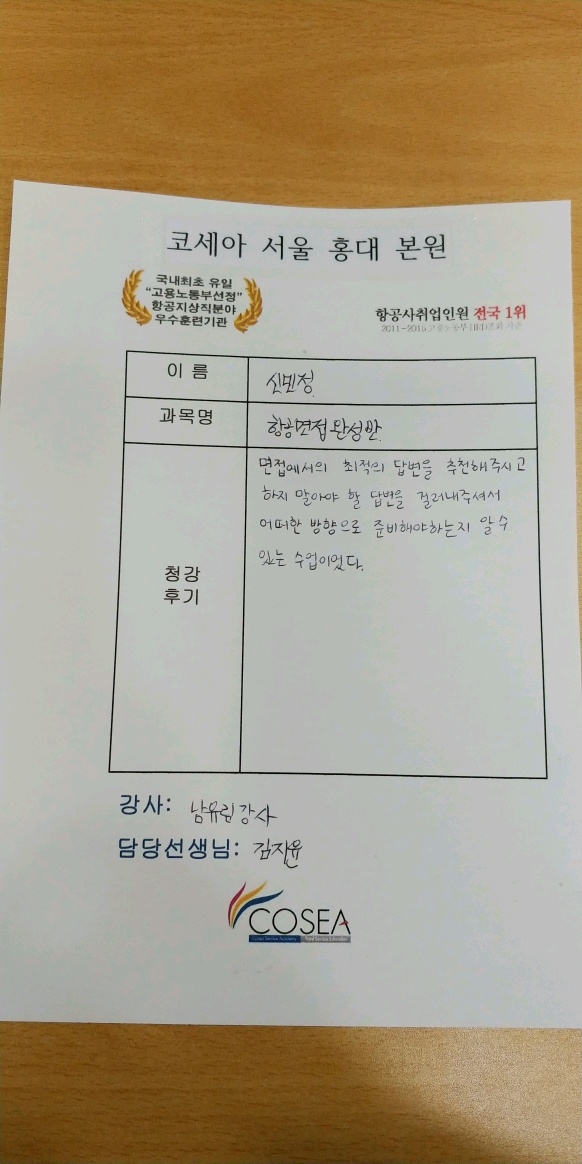 코세아 서울 홍대 본원
국내최초 유일
"고용노동부선정"
항공지상직분야
우수훈련기관
항공사취업인원 전국 1위
2011-2016 고용노동부 HRD조회 기준
이 름
신민정
과목명
항공면접 완성반
청강
후기
면접에서의 최적의 답변을 추천해주시고
하지 말아야 할 답변을 걸러내주셔서
어떠한 방향으로 준비해야하는지 알 수
있는 수업이었다.
강사: 남유림 강사
담당선생님: 김지윤
COSEA